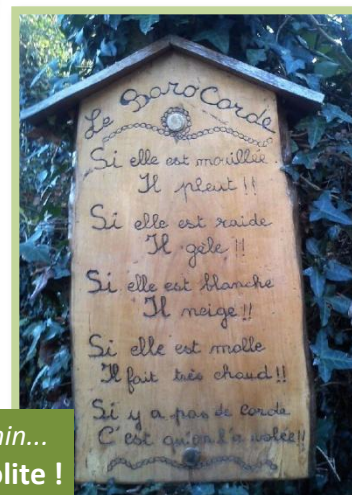 Le Baro'Corde
Si elle est mouillée
Il pleut !!
Si elle est raide
Il gèle !!
Si elle est blanche
Il neige !!
Si elle est molle
Il fait très chaud !!
Si y a pas de corde
C'est qu'on l'a volée !!
min...
olite !